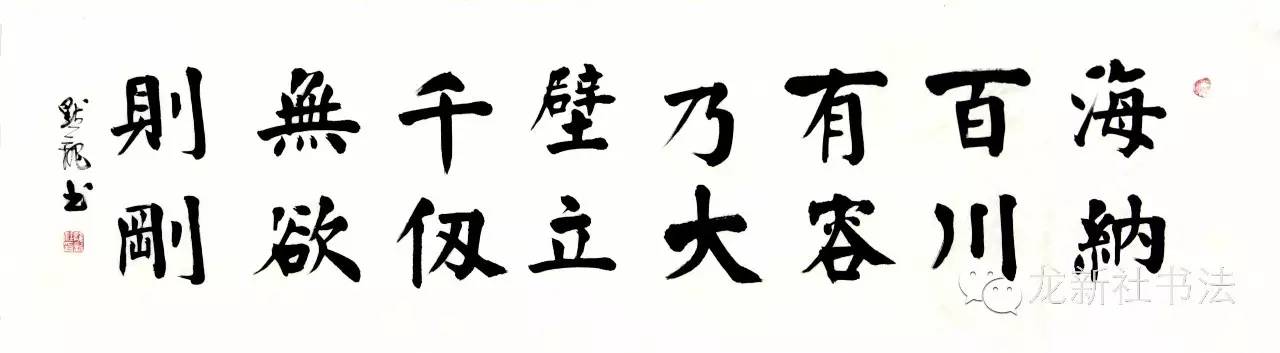 海納
百川
有容
乃大
壁立
千仞
無欲
則剛
龍书
龙新社书法